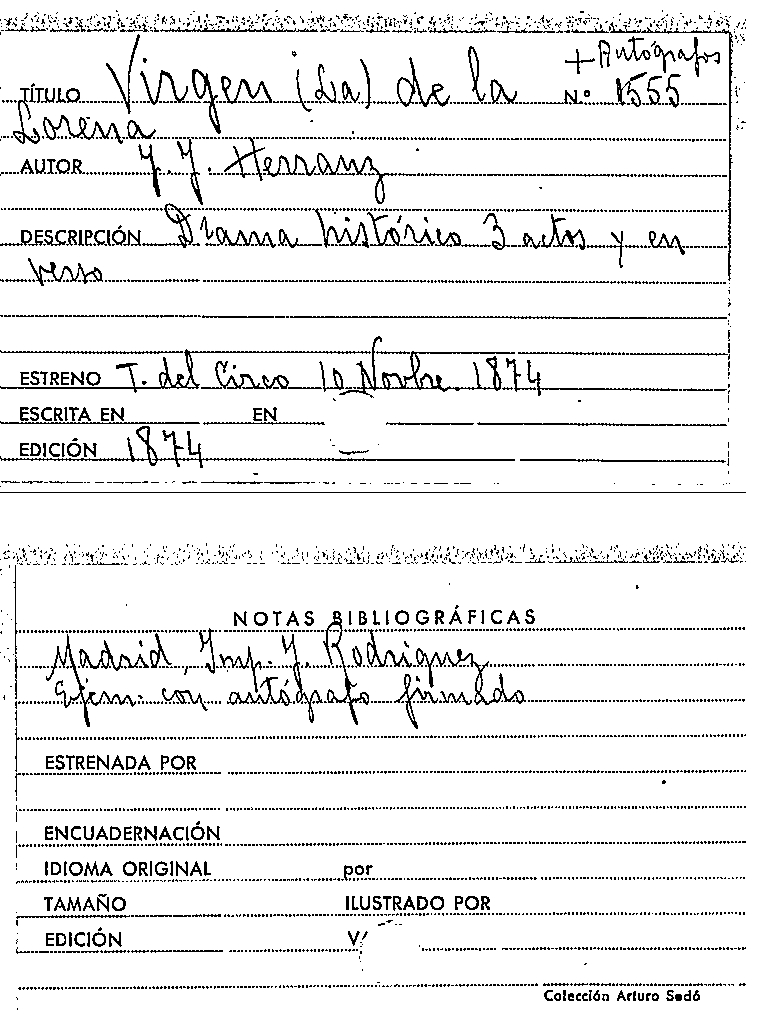 + Autógrafos
TÍTULO Virgen (La) de la Nº 1555
Lorena
AUTOR J. J. Herranz
DESCRIPCIÓN Drama histórico 3 actos y en
verso
ESTRENO T. del Circo 10 Novbre. 1874
ESCRITA EN EN
EDICIÓN 1874
NOTAS BIBLIOGRÁFICAS
Madrid, Imp. J. Rodriguez
Ejem. con autógrafo firmado
ESTRENADA POR
ENCUADERNACIÓN
IDIOMA ORIGINAL por
TAMAÑO ILUSTRADO POR
EDICIÓN V/
Colección Arturo Sedó